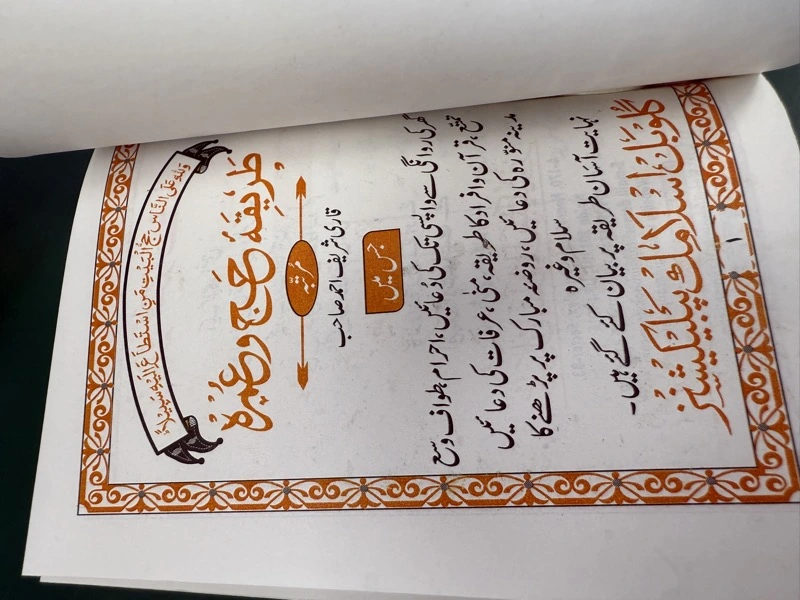 وَلِلّٰهِ عَلَى النَّاسِ حِجُّ الْبَيْتِ مَنِ اسْتَطَاعَ اِلَيْهِ سَبِيْلًا
طَرِيقَهٔ حَجّ وعُمْرَہ
مرتبہ
قاری شریف احمد صاحب
جس میں
گھر کی روانگی سے واپسی تک کی دُعائیں، احرام، طواف وسعی
تمتع، قرآن وافراد کا طریقہ، منٰی، عرفات کی دعائیں
مدینہ منورہ کی دعائیں، روضہ مبارک پر پڑھنے کا
سلام وغیرہ
نہایت آسان طریقہ پر بیان کئے گئے ہیں۔
گلوبل اسلامک پبلیکیشنز
۱